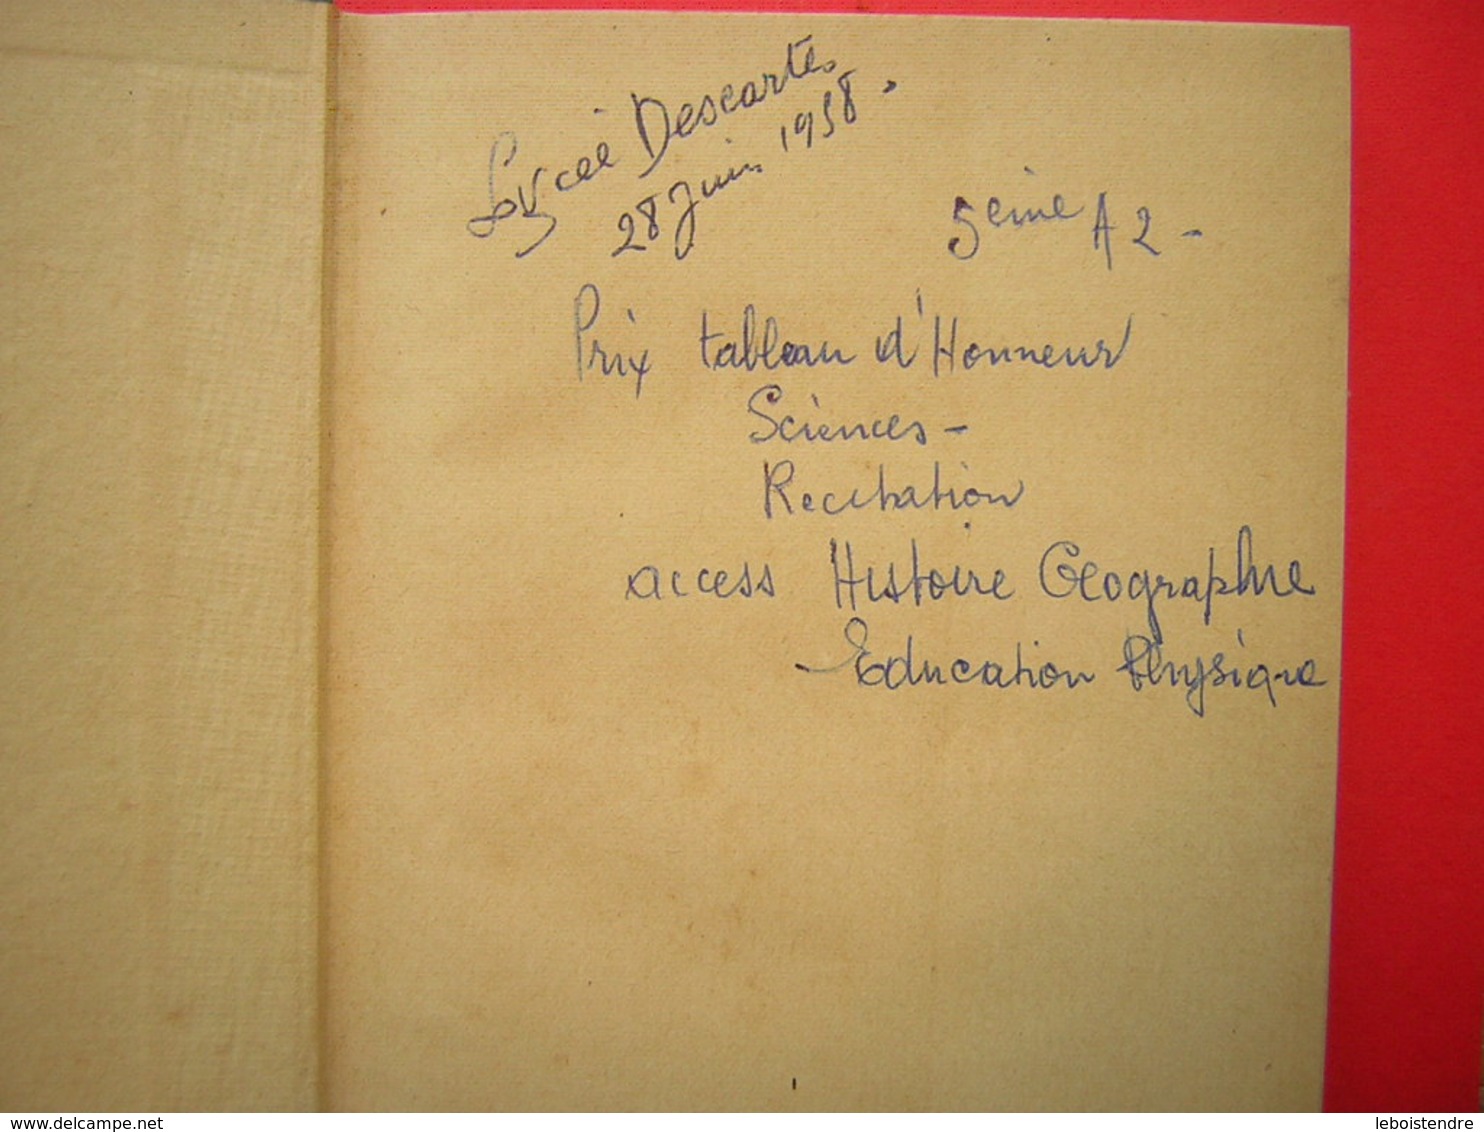 Lycée Descartes
28 Juin 1958.
5eme A2-
Prix tableau d'Honneur
Sciences-
Recitation
access Histoire Geographie
-Education Physique
delcampe.net
leboistendre